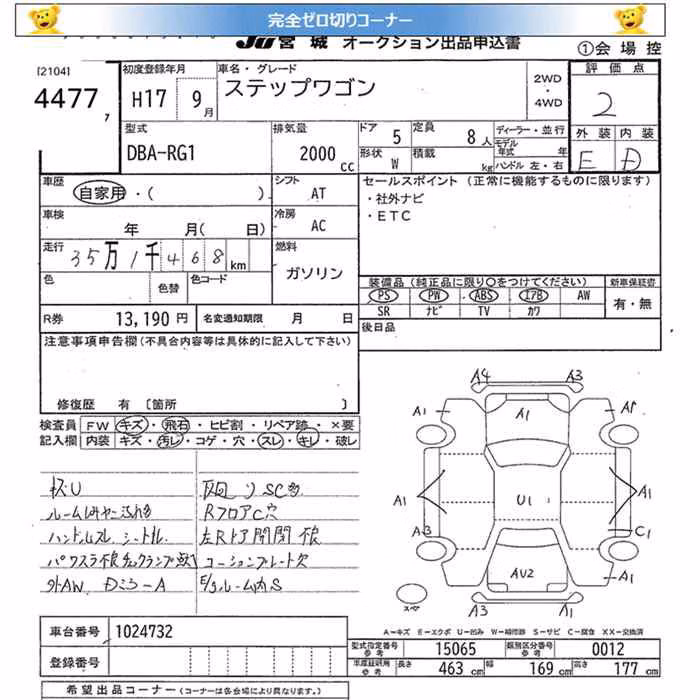 完全ゼロ切りコーナー
JU 宮城 オークション出品申込書
①会場控
[2104]
4477 7
初度登録年月
H17 9月
車名・グレード
ステップワゴン
2WD
・
4WD
評価点
2
外装 内装
E D
型式
DBA-RG1
排気量
2000 cc
ドア 5
定員 8人
形状 W
積載 kg
ディーラー・並行
モデル年式 年
ハンドル 左・右
車歴
自家用・( )
シフト AT
セールスポイント (正常に機能するものに限ります)
・社外ナビ
・ETC
車検 年 月( 日)
冷房 AC
走行 35万1千468km
燃料
ガソリン
色 色替 色コード
装備品(純正品に限り○をつけてください)
PS PW ABS エアB AW
SR ナビ TV カワ
新車保証書
有・無
R券 13,190円
名変通知期限 月 日
後日品
注意事項申告欄(不具合内容等は具体的に記入して下さい)
修復歴 有 〔箇所 〕
検査員 FW キズ・飛石・ヒビ割・リペア跡・×要
記入欄 内装 キズ・汚レ・コゲ・穴・スレ・キレ・破レ
A4 A3
A1 A1 A1
A1 U1 A1
A3 C1
AU2 A1
スペア
A3 A1
RフロアC穴
ハンドルスレ シートル
左Rドア開閉不良
コーションプレート欠
外AW
A−キズ E−エクボ U−凹み W−補修跡 S−サビ C−腐食 XX−交換済
車台番号 1024732
登録番号
型式指定番号 参考 15065
類別区分番号 参考 0012
車庫証明用 参考 長さ 463 cm 幅 169 cm 高さ 177 cm
希望出品コーナー (コーナーは各会場により異なります)